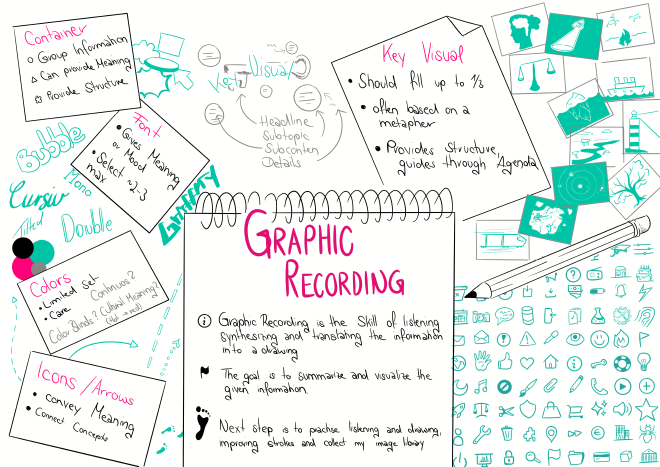 Container
Group Information
Can provide Meaning
Provide Structure
Key Visual
Headline
Subtopic
Subconten
Details
Key Visual
Should fill up to 1/3
often based on a
metapher
Provides Structure,
guides through Agenda
Bubble
Font
Gives Meaning
or Mood
Select ~2-3
max
Mono
Cursiv
Tilted
Double
GRAFFITI
Colors
Limited Set
Care
Continuos?
Cultural Meaning?
Color Blinds?
(Hot → red)
Icons/Arrows
convey Meaning
Connect Concepts
GRAPHIC
RECORDING
Graphic Recording is the Skill of listening
synthesizing and translating the information
into a drawing
The goal is to summarize and visualize the
given information
Next step is to practise listening and drawing,
improving strokes and collect my image library